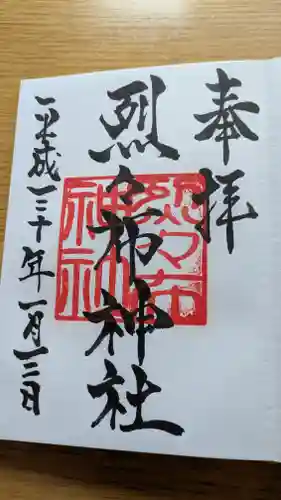 奉拝
烈々布神社
平成三十年一月三日
烈々布
神社